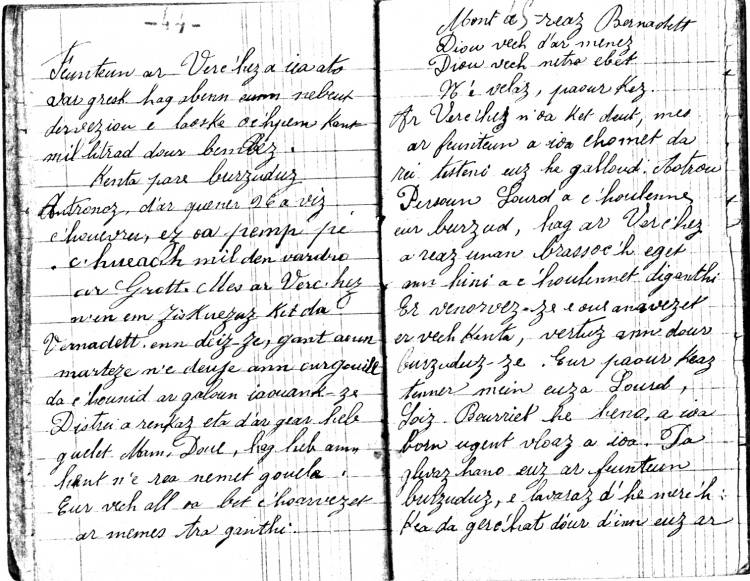 -44-
Feunteun ar Verc'hez a ioa ato
var gresk hag abenn eunn nebeut
dervesiou e laoske ouhpenn kant
mil litrad dour bemdez.
Kenta pare burzuduz
Antronoz, d'ar guener 26 a viz
c'houevreu, ez oa pemp pe
c'hueac'h mil den vardro
ar Grott. Mes ar Verc'hez
n'en em ziskuezaz ket da
Vernadett enn deiz-ze, gant aoun
marteze n'e deuje ann ourgouill
da c'hounid ar galoun iaouank-ze
Distrei a renkaz eta d'ar gear heb
guelet Mam Doue, hag heb ann
hent n'e rea nemet gouela.
Eur vech all oa bet c'hoarvezet
ar memes tra ganthi.
-45-
Mont a reaz Bernadett
Diou vech d'ar menez
Diou vech netra ebet
N'e velaz, paour kez.
Ar Verc'hez n'oa ket deut, mes
ar feunteun a ioa chomet da
rei testeni euz he galloud. Aotrou
Persoun Lourd a c'houlenne
eur burzud, hag ar Verc'hez
a reaz unan brassoc'h eget
ann hini a c'houlennet diganthi
Er venorvez-ze e oa anavezet
er vech kenta, vertuz ann dour
burzuduz-ze. Eur paour keaz
tenner mein euz a Lourd,
Loiz Bourriet he hano, a ioa
born ugent vloaz a ioa. Pa
glevaz hano euz ar feunteun
burzuduz, e lavaraz d'he merc'h:
Kea da gerc'hat dour d'inn euz ar